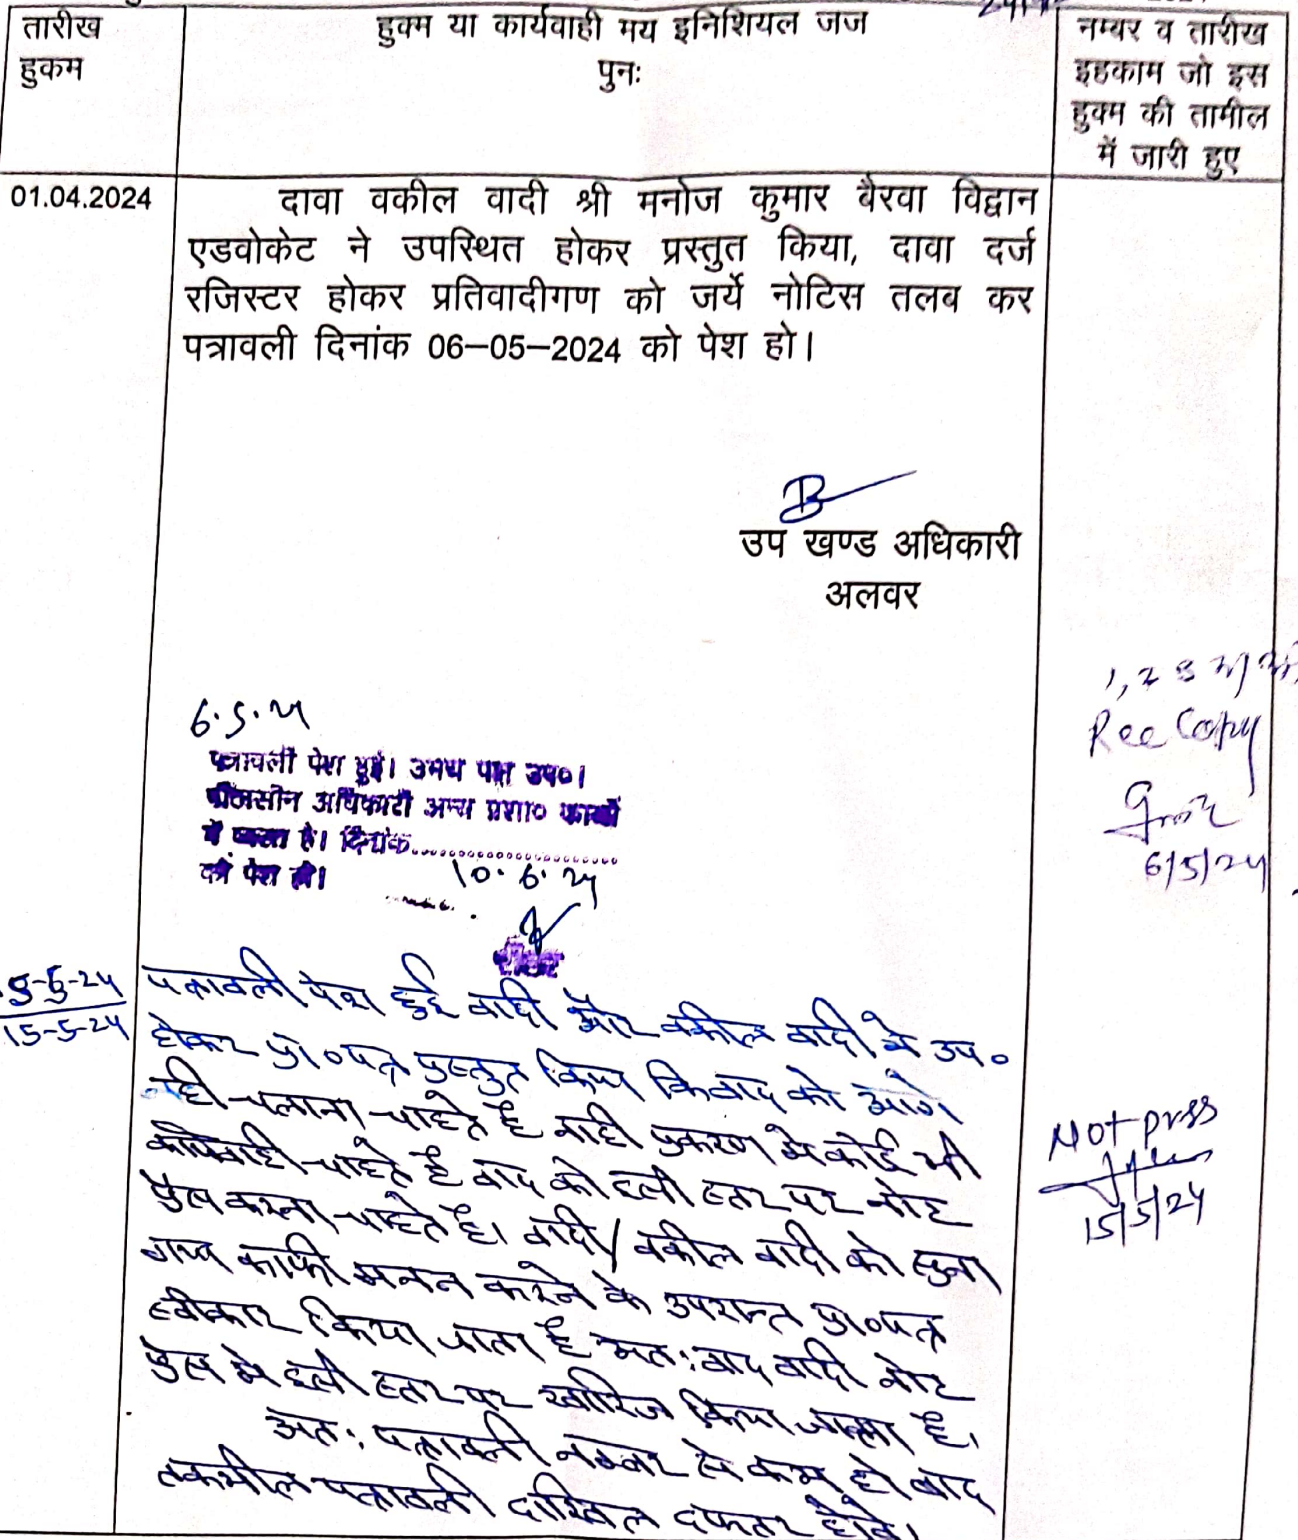 तारीख
हुकम
हुक्म या कार्यवाही मय इनिशियल जज
पुनः
नम्बर व तारीख
इहकाम जो इस
हुक्म की तामील
में जारी हुए
01.04.2024
दावा वकील वादी श्री मनोज कुमार बैरवा विद्वान
एडवोकेट ने उपस्थित होकर प्रस्तुत किया, दावा दर्ज
रजिस्टर होकर प्रतिवादीगण को जर्ये नोटिस तलब कर
पत्रावली दिनांक 06–05–2024 को पेश हो।
उप खण्ड अधिकारी
अलवर
1, 2
Rec Copy
6/5/24
6.5.24
पत्रावली पेश हुई। उभय पक्ष उप०।
पीठासीन अधिकारी अन्य प्रशा० कार्यो
में व्यस्त है। दिनांक........................
को पेश हो।
10.6.24
रीडर
15-5-24
पत्रावली पेश हुई वादी और वकील वादी ने उप०
होकर प्रा०पत्र प्रस्तुत किया कि वाद को आगे
नही चलाना चाहते है नाही प्रकरण मे कोई भी
कार्यवाही चाहते है वाद को इसी स्तर पर नोट
प्रेस करना चाहते है। वादी/वकील वादी को सुना
गया काफी मनन करने के उपरान्त प्रा०पत्र
स्वीकार किया जाता है अतः वाद वादी नोट
प्रेस मे इसी स्तर पर खारिज किया जाता है।
अतः पत्रावली नम्बर से कम हो बाद
तकमील पत्रावली दाखिल दफ्तर होवे।
Not press
15/5/24